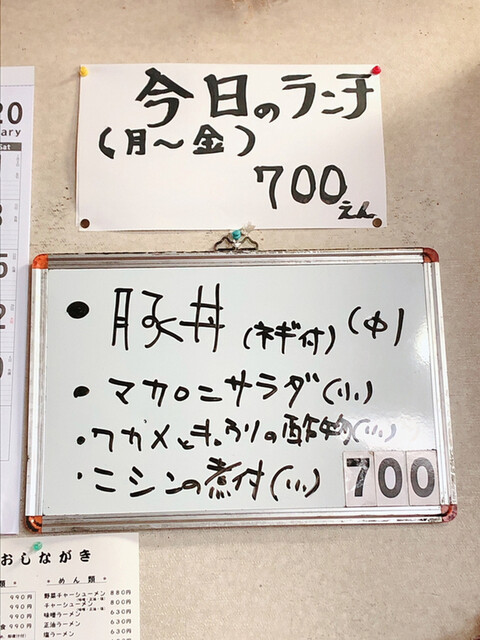 今日のランチ
(月〜金)
700えん
20
ary
Sat
・豚丼(ネギ付)(中)
・マカロニサラダ(小)
・ワカメときゅうりの酢物(小)
・ニシンの煮付(小)
700
おしながき
めん類
990円
990円
990円
990円
野菜チャーシューメン 880円
チャーシューメン 800円
味噌ラーメン 630円
正油ラーメン 630円
塩ラーメン 630円